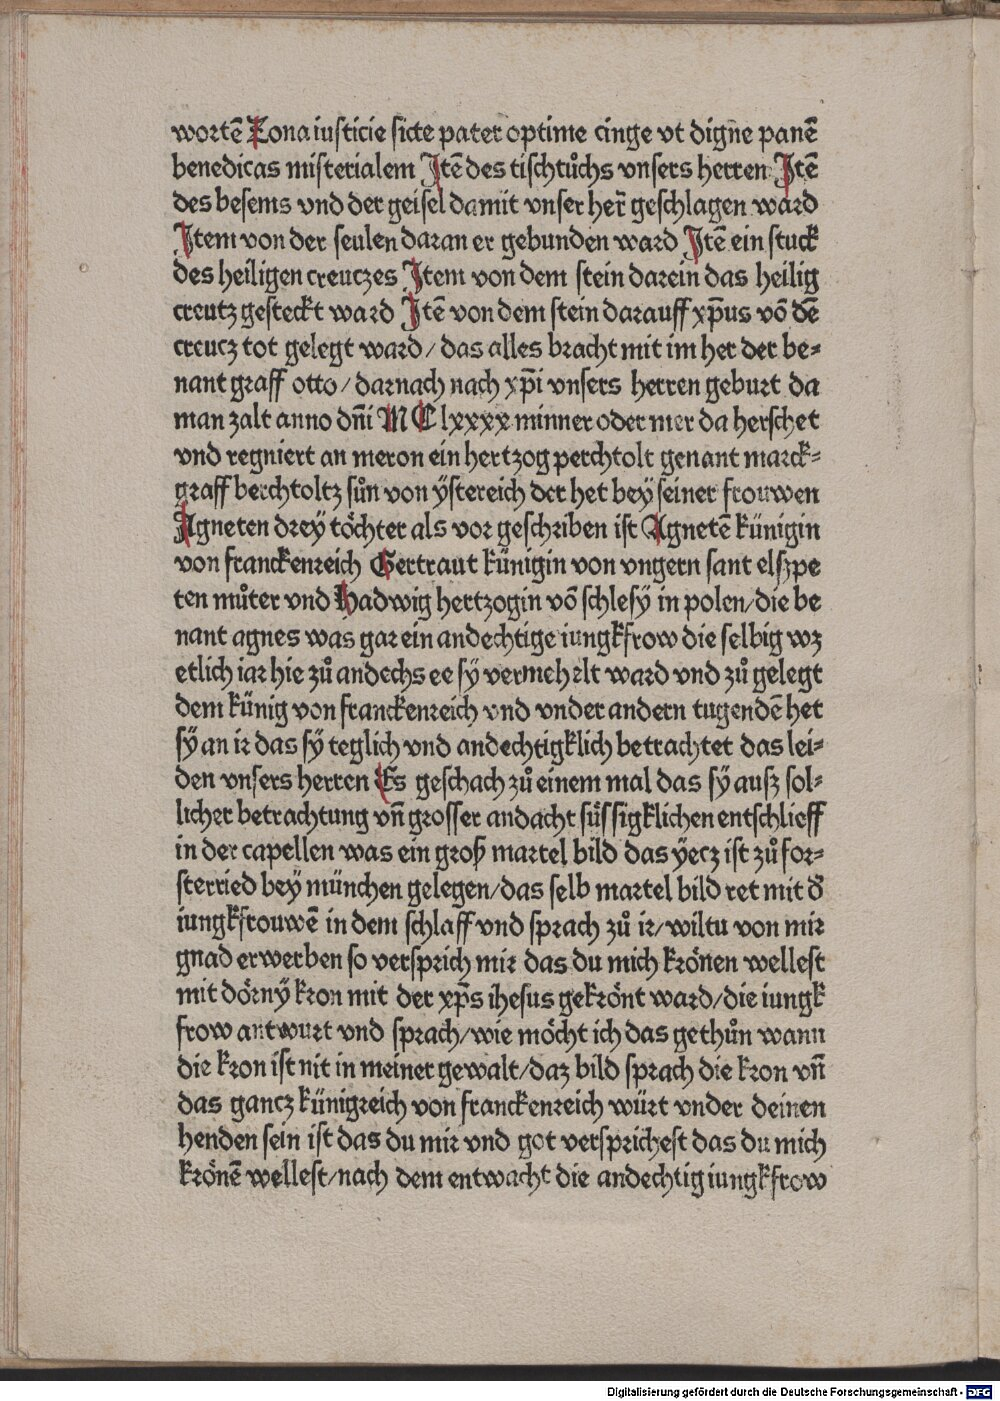 wortē Zona iusticie sicte pater optime cinge vt digne panē
benedicas misterialem Jtē des tischtůchs vnsers herren Jtē
des besems vnd der geisel damit vnser her̄ geschlagen ward
Jtem von der seulen daran er gebunden ward Jtē ein stuck
des heiligen creuczes Jtem von dem stein darein das heilig
creutz gesteckt ward Jtē von dem stein darauff xp̄us vō dē
creucz tot gelegt ward/ das alles bracht mit im her der be⸗
nant graff otto/ darnach nach xp̄i vnsers herren geburt da
man zalt anno dn̄i M C lxxxx minner oder mer da herschet
vnd regniert an meron ein hertzog perchtolt genant marck⸗
graff berchtoltz sůn von ÿstereich der het beÿ seiner frouwen
Agneten dreÿ töchter als vor geschriben ist Agnetē künigin
von franckenreich Gertraut künigin von vngern sant elszpe
ten můter vnd Hadwig hertzogin vō schlesÿ in polen/die be
nant agnes was gar ein andechtige iungkfrow die selbig wz
etlich iar hie zů andechs ee sÿ vermehelt ward vnd zů gelegt
dem künig von franckenreich vnd vnder andern tugendē het
sÿ an ir das sÿ teglich vnd andechtigklich betrachtet das lei⸗
den vnsers herren Es geschach zů einem mal das sÿ ausz sol⸗
licher betrachtung vn̄ grosser andacht süssigklichen entschlieff
in der capellen was ein groß martel bild das ÿecz ist zů for⸗
sterried beÿ münchen gelegen/das selb martel bild ret mit d̕
iungkfrouwē in dem schlaff vnd sprach zů ir/wiltu von mir
gnad erwerben so versprich mir das du mich krönen wellest
mit dörnÿ kron mit der xp̄s ihesus gekrönt ward/die iungk
frow antwurt vnd sprach/wie möcht ich das gethůn wann
die kron ist nit in meiner gewalt/daz bild sprach die kron vn̄
das gancz künigreich von franckenreich würt vnder deinen
henden sein ist das du mir vnd got versprichest das du mich
krönē wellest/nach dem entwacht die andechtig iungkfrow
Digitalisierung gefördert durch die Deutsche Forschungsgemeinschaft - DFG